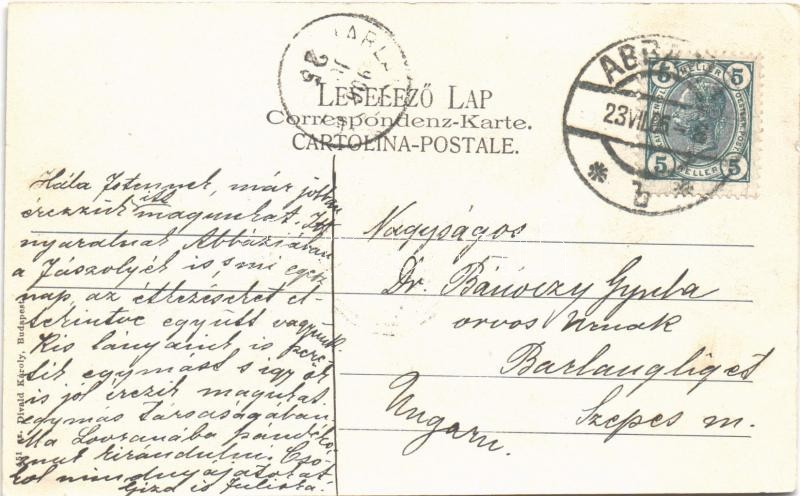 LEVELEZŐ LAP
Correspondenz-Karte.
CARTOLINA-POSTALE.
ABB
23 VII 05
b
5 HELLER 5
5 HELLER 5
25
Hála Istennek, már jobban
érezzük itt magunkat. Itt
nyaralnak Abbáziában
a Jászolyék is, s mi egész
nap, az étkezéseket el-
tekintve együtt vagyunk.
Kis lányaink is szere-
tik egymást s így ők
is jól érzik magukat
egymás társaságában.
Ma Lovranába
kirándulni. Csó-
kol mindnyájatokat
Giza is Juliska.
Nagyságos
Dr. Bánóczy Gyula
orvos Urnak
Barlangliget
Szepes m.
Ungarn.
151 sz. Divald Károly, Budapest